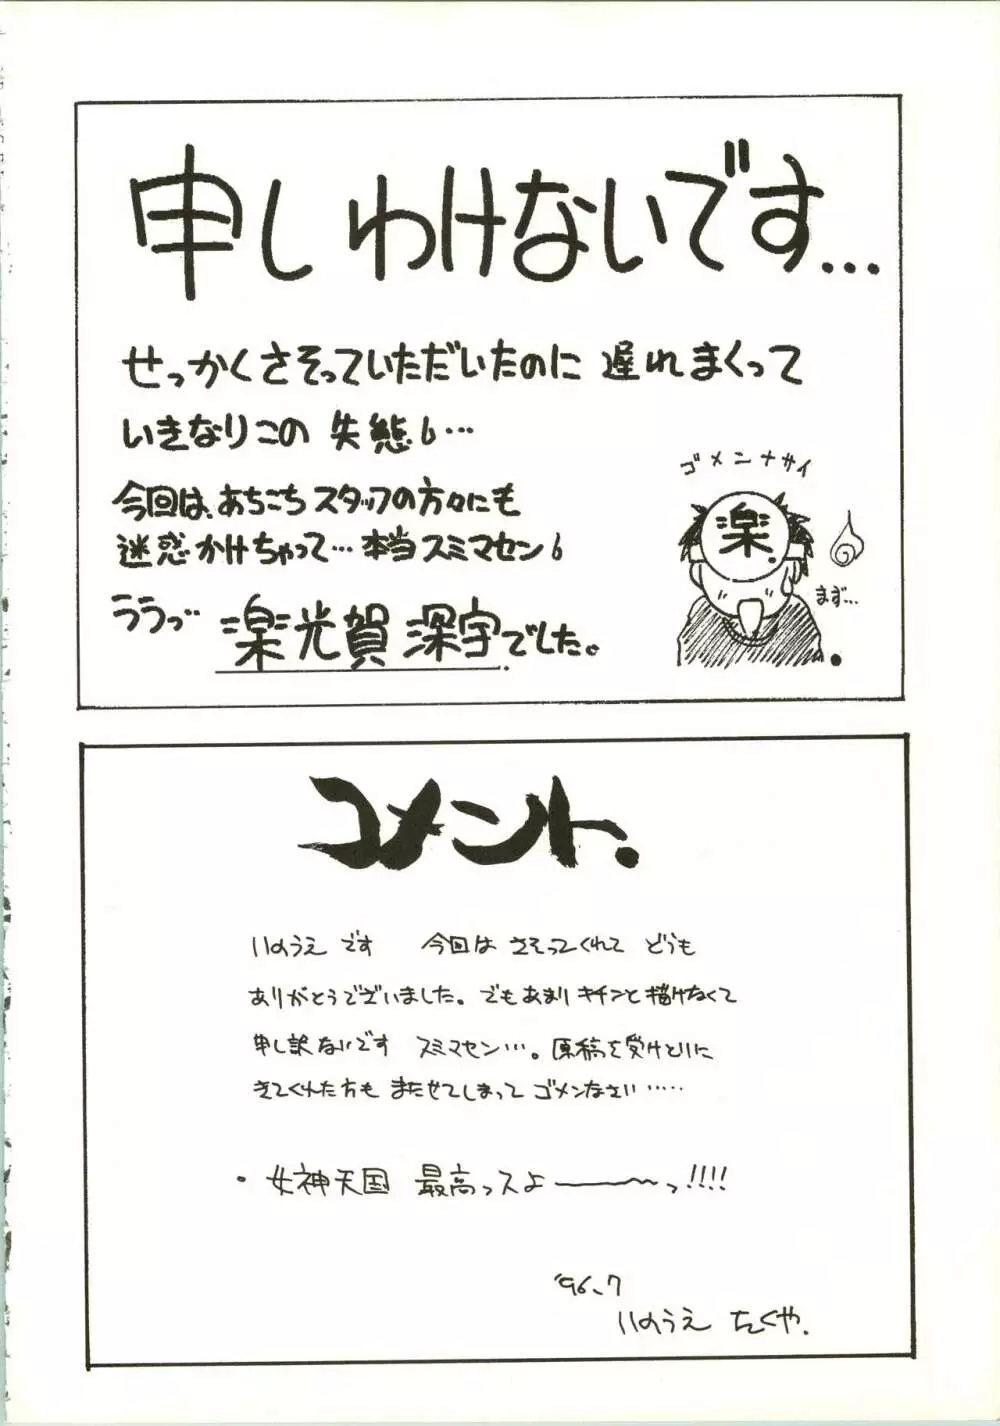 申しわけないです...
せっかくさそっていただいたのに 遅れまくって
いきなりこの 失態6…
今回は、あちこちスタッフの方々にも
迷惑かけちゃって… 本当スミマセン6
ううっ゛ 楽光賀 深宇でした。
ゴメンナサイ
楽
まず…
コメント.
いのうえ です 今回は さそってくれて どうも
ありがとうございました。でもあまりキチンと描けなくて
申し訳ないです スミマセン…。原稿を受けとりに
きてくれた方も またせてしまって ゴメンなさい……
・女神天国 最高っスよ———〜っ!!!!
'96.7
いのうえ たくや.